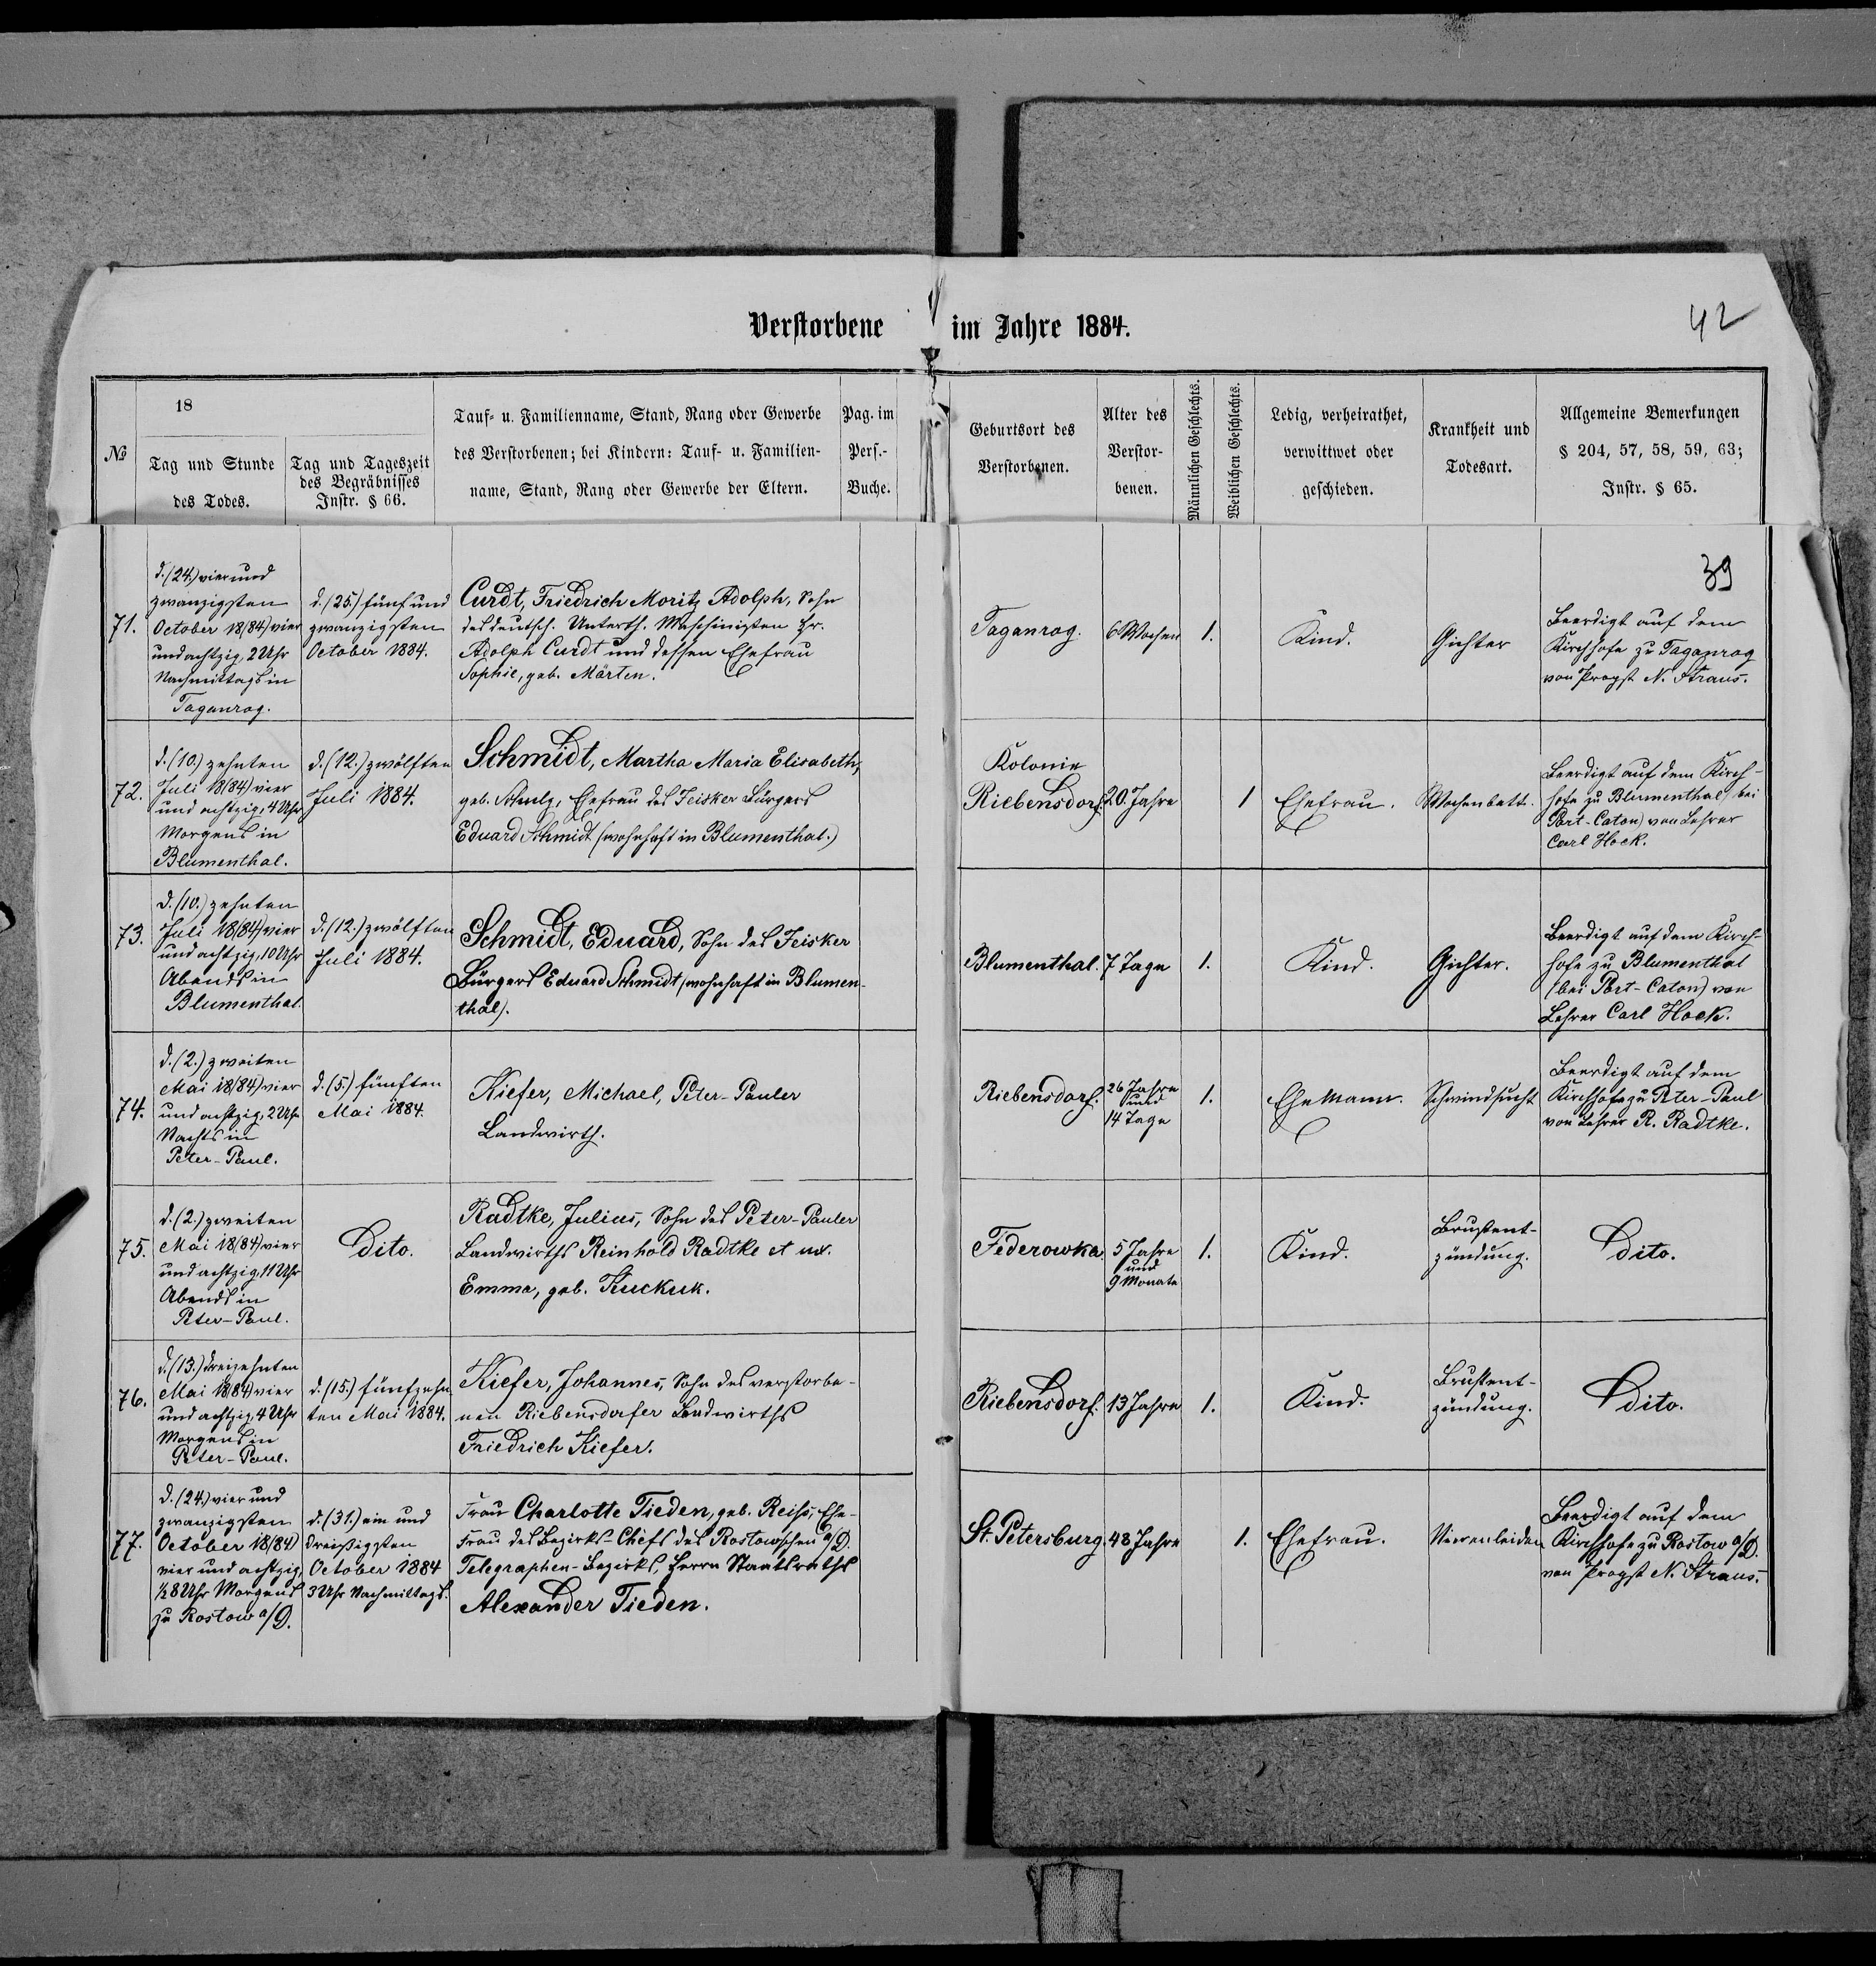 Verstorbene im Jahre 1884.
42
18
№
Tag und Stunde
des Todes.
Tag und Tageszeit
des Begräbnisses
Instr. § 66.
Tauf- u. Familienname, Stand, Rang oder Gewerbe
des Verstorbenen; bei Kindern: Tauf- u. Familien-
name, Stand, Rang oder Gewerbe der Eltern.
Pag. im
Pers.-
Buche.
Geburtsort des
Verstorbenen.
Alter des
Verstor-
benen.
Männlichen Geschlechts.
Weiblichen Geschlechts.
Ledig, verheirathet,
verwittwet oder
geschieden.
Krankheit und
Todesart.
Allgemeine Bemerkungen
§ 204, 57, 58, 59, 63;
Instr. § 65.
39
71.
d. (24.) vier und
zwanzigsten
October 18(84) vier
und achtzig, 2 Uhr
Nachmittags in
Taganrog.
d. (25.) fünf und
zwanzigsten
October 1884.
Curdt, Friedrich Moritz Adolph, Sohn
des deutsch. Unterth. Maschinisten Hr.
Adolph Curdt und dessen Ehefrau
Sophie, geb. Märten.
Taganrog.
6 Wochen
1.
Kind.
Gichter
Beerdigt auf dem
Kirchhofe zu Taganrog
von Propst N. Straus.
72.
d. (10.) zehnten
Juli 18(84) vier
und achtzig, 4 Uhr
Morgens in
Blumenthal.
d. (12.) zwölften
Juli 1884.
Schmidt, Martha Maria Elisabeth,
geb. Schulz, Ehefrau des Jeisker Bürgers
Eduard Schmidt (wohnhaft in Blumenthal.)
Kolonie
Riebensdorf.
20. Jahre
1
Ehefrau.
Wochenbett.
Beerdigt auf dem Kirch-
hofe zu Blumenthal (bei
Port-Caton) von Lehrer
Carl Hock.
73.
d. (10.) zehnten
Juli 18(84) vier
und achtzig, 10 Uhr
Abends in
Blumenthal.
d. (12.) zwölften
Juli 1884.
Schmidt, Eduard, Sohn des Jeisker
Bürgers Eduard Schmidt (wohnhaft in Blumen-
thal).
Blumenthal.
7 Tage
1.
Kind.
Gichter.
Beerdigt auf dem Kirch-
hofe zu Blumenthal
(bei Port-Caton) von
Lehrer Carl Hock.
74.
d. (2.) zweiten
Mai 18(84) vier
und achtzig, 2 Uhr
Nachts in
Peter-Paul.
d. (5.) fünften
Mai 1884.
Kiefer, Michael, Peter-Pauler
Landwirth.
Riebensdorf.
26 Jahre
und
14 Tage
1.
Ehemann.
Schwindsucht
Beerdigt auf dem
Kirchhofe zu Peter-Paul
von Lehrer R. Radtke.
75.
d. (2.) zweiten
Mai 18(84) vier
und achtzig, 11 Uhr
Abends in
Peter-Paul.
Dito.
Radtke, Julius, Sohn des Peter-Pauler
Landwirths Reinhold Radtke et ux.
Emma, geb. Kuckuk.
Federowka.
5 Jahre
und
9 Monate
1.
Kind.
Brustent-
zündung.
Dito.
76.
d. (13.) dreizehnten
Mai 18(84) vier
und achtzig, 4 Uhr
Morgens in
Peter-Paul.
d. (15.) fünfzehn
ten Mai 1884.
Kiefer, Johannes, Sohn des verstorbe-
nen Riebensdorfer Landwirths
Friedrich Kiefer.
Riebensdorf.
13 Jahre
1.
Kind.
Brustent-
zündung.
Dito.
77.
d. (24.) vier und
zwanzigsten
October 18(84)
vier und achtzig,
½ 8 Uhr Morgens
zu Rostow a/D.
d. (31.) ein und
dreißigsten
October 1884
3 Uhr Nachmittags.
Frau Charlotte Tieden, geb. Reiss, Ehe-
frau des Bezirks-Chefs des Rostowschen a/D.
Telegraphen-Bezirks, Herrn Staatsraths
Alexander Tieden.
St. Petersburg.
48 Jahre
1.
Ehefrau.
Nierenleiden
Beerdigt auf dem
Kirchhofe zu Rostow a/D.
von Propst N. Straus.